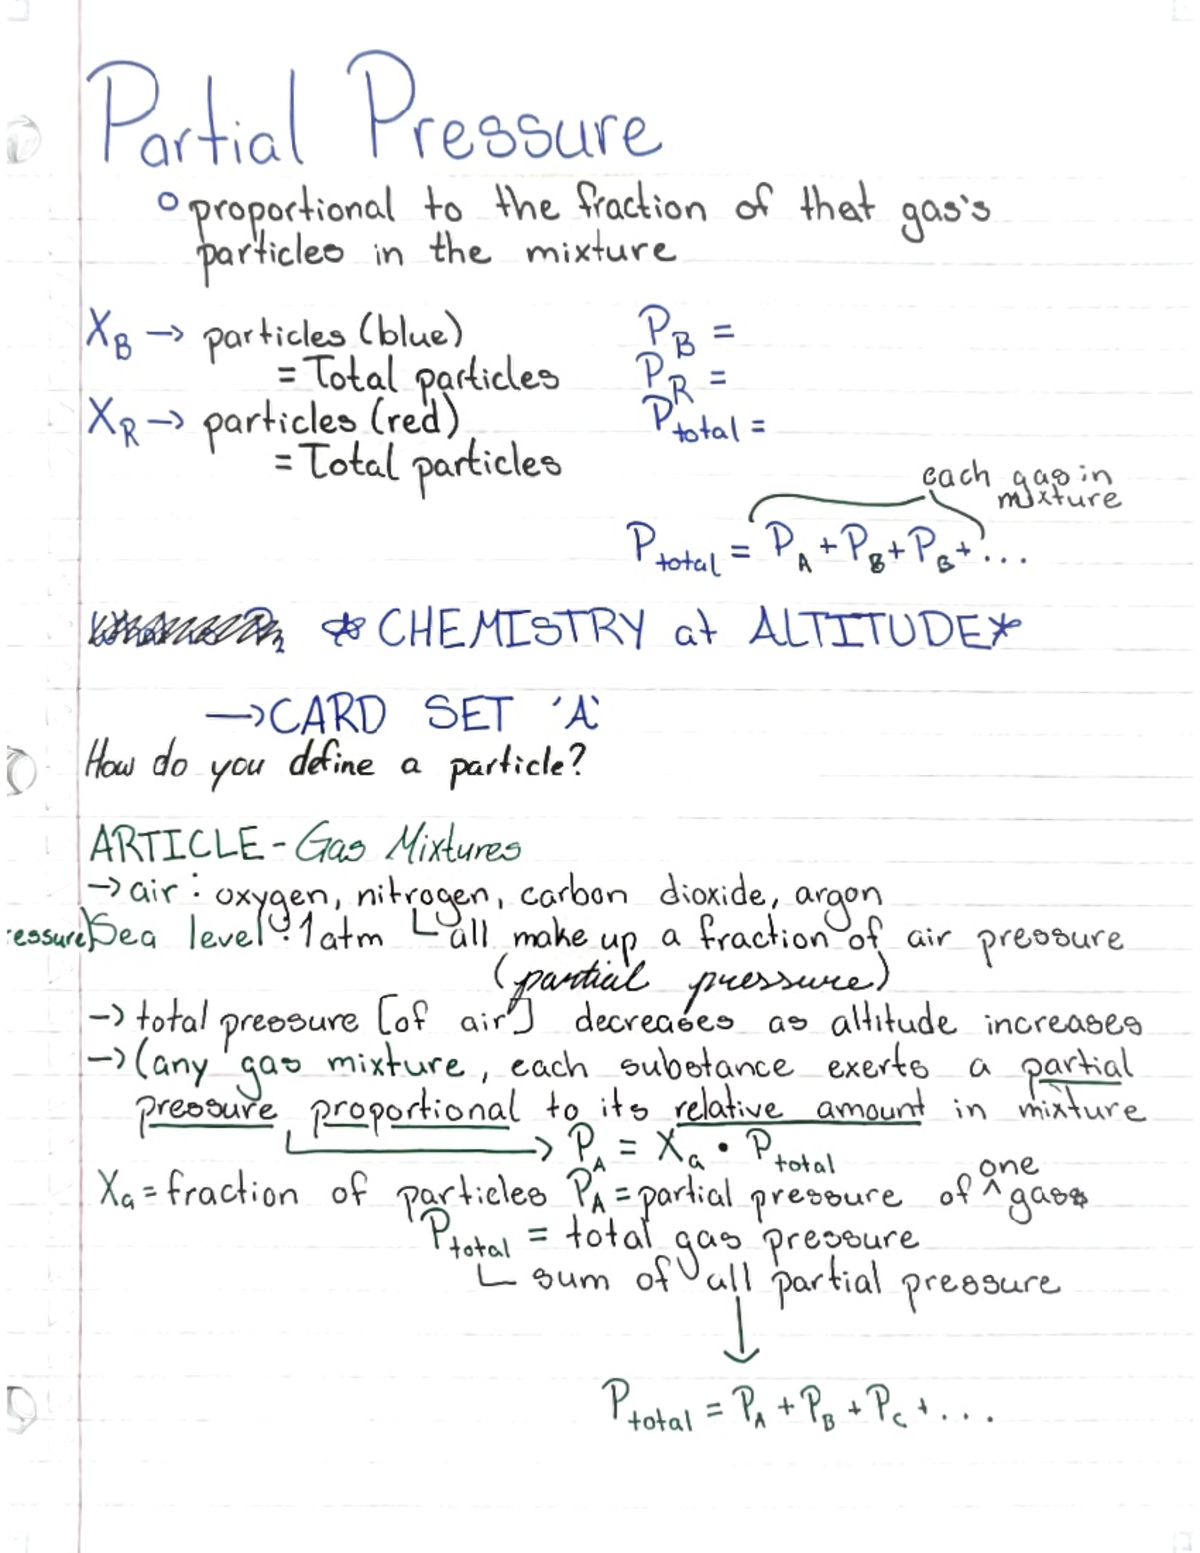 Partial Pressure
○ proportional to the fraction of that gas's
particles in the mixture
X_B → particles (blue)
= Total particles
X_R → particles (red)
= Total particles
P_B =
P_R =
P_total =
each gas in
mixture
P_total = P_A + P_B + P_B + ...
☆ CHEMISTRY at ALTITUDE ☆
→ CARD SET 'A'
How do you define a particle?
ARTICLE - Gas Mixtures
→ air : oxygen, nitrogen, carbon dioxide, argon
essure) Sea level : 1 atm └ all make up a fraction of air pressure
(partial pressure)
→ total pressure [of air] decreases as altitude increases
→ (any gas mixture, each substance exerts a partial
pressure proportional to its relative amount in mixture
→ P_A = X_a • P_total
X_a = fraction of particles P_A = partial pressure of ^one gas
P_total = total gas pressure
└ sum of all partial pressure
↓
P_total = P_A + P_B + P_C + ...